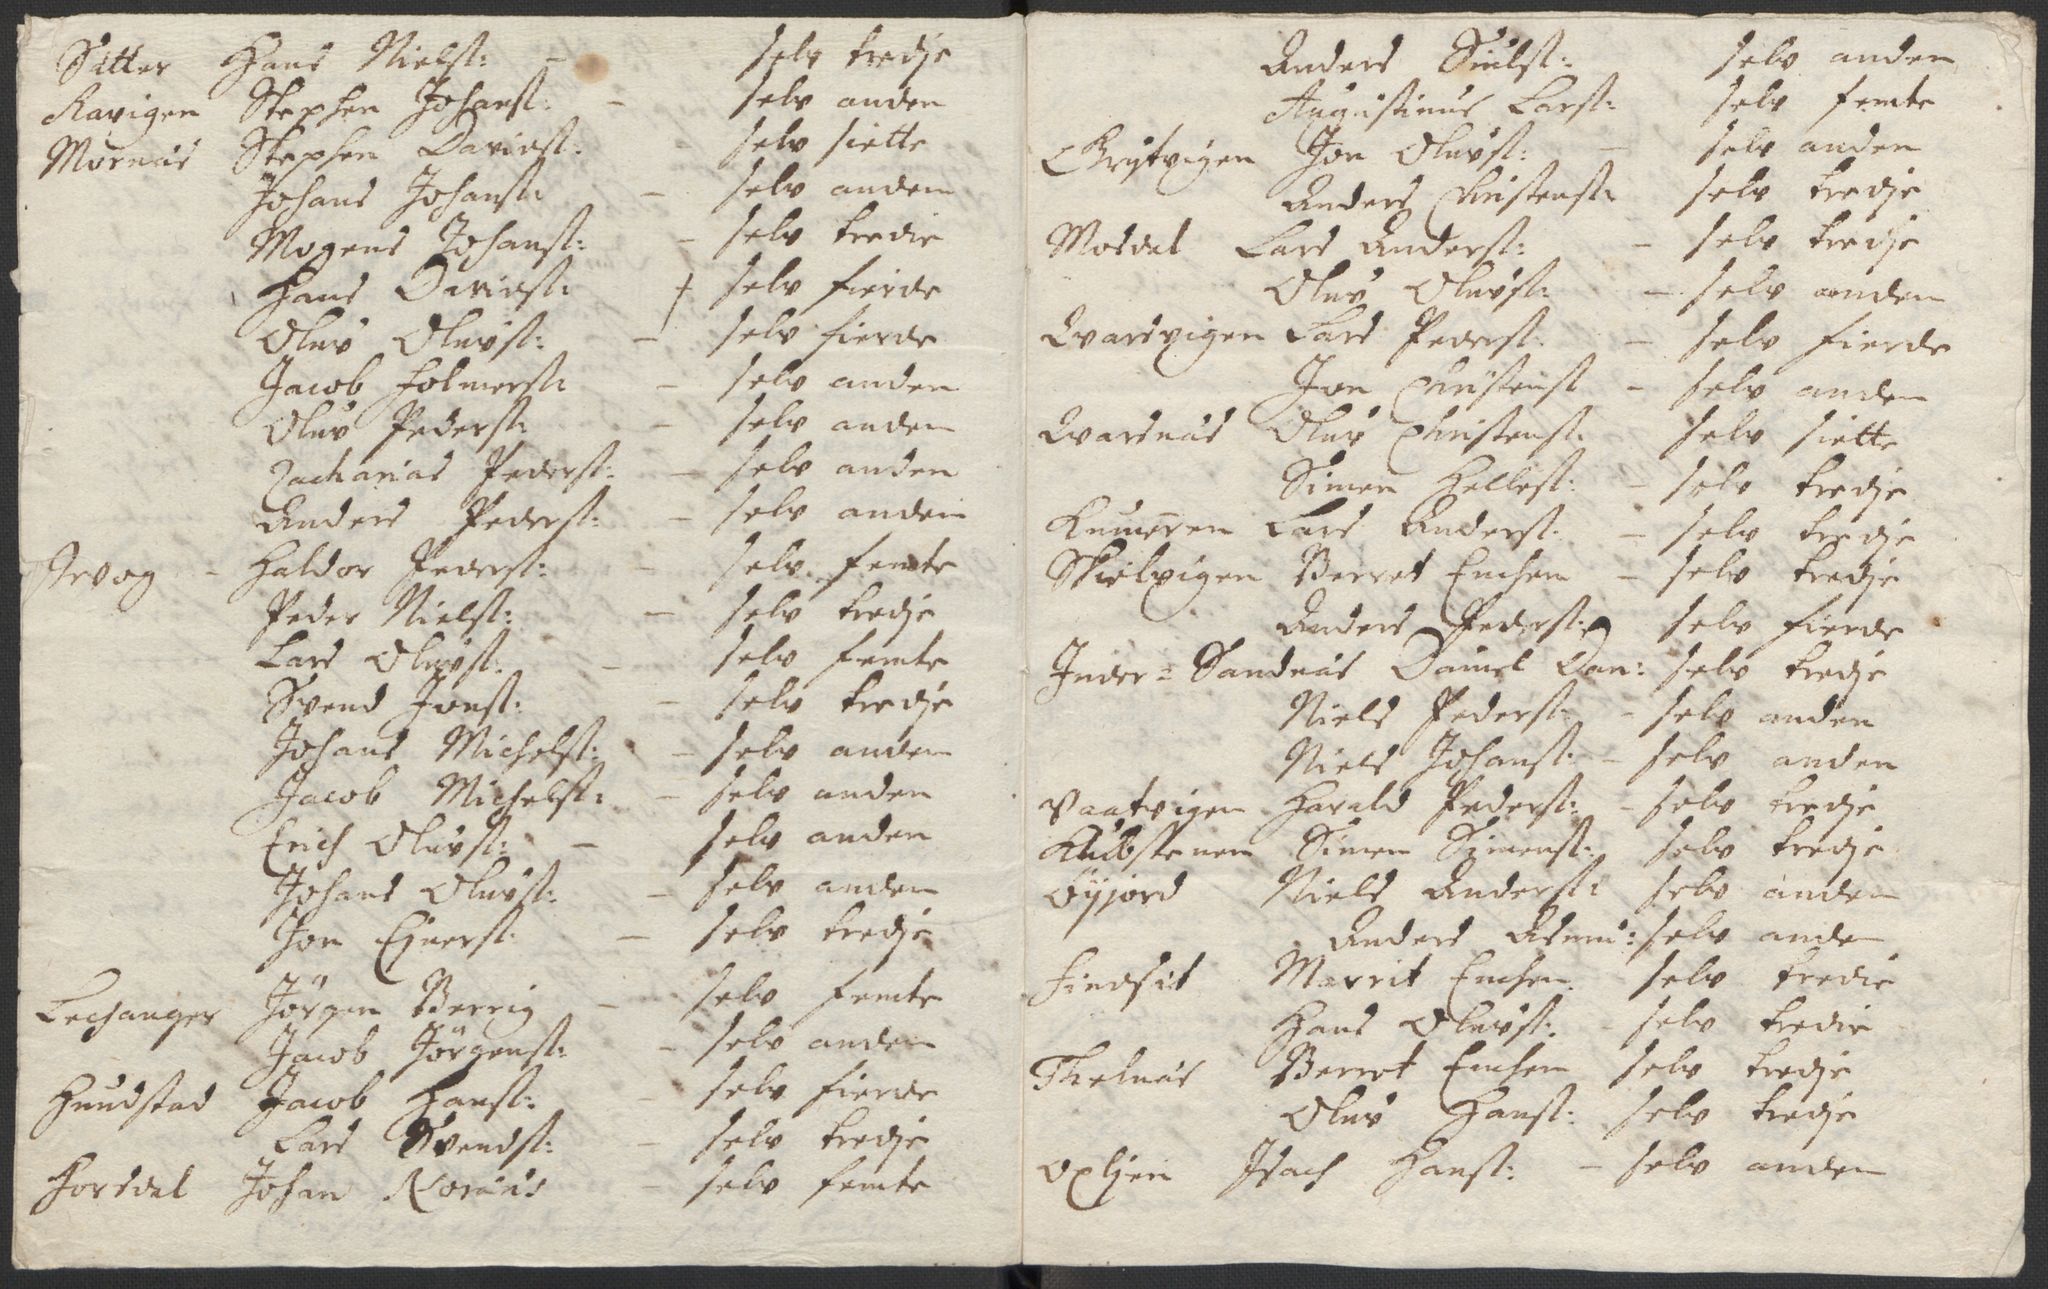 Sitter Hans Nielst: – selv tredje
Ravigen Stephen Johanst: – selv anden
Mornäs Stephen Davidst: selv siette
Johans Johanst: – selv anden
Mogens Johanst: – selv tredie
Hans Davidst: + selv fierde
Oluv Oluvst: – selv fierde
Jacob Holmerst: – selv anden
Oluv Pederst: – selv anden
Zacharias Pederst: – selv anden
Anders Pederst: – selv anden
Jevog – Haldor Pederst: – selv femte
Peder Nielst: – selv tredje
Lars Oluvst: – selv femte
Svend Jonst: – selv tredje
Johans Michelst: – selv anden
Jacob Michelst: – selv anden
Erich Oluvst: – selv anden
Johans Oluvst: – selv anden
Jon Ejnerst: – selv tredje
Lechanger Jörgen Berrig – selv femte
Jacob Jörgenst: – selv anden
Hundstad Jacob Hanst: – selv fierde
Lars Svendst: – selv tredje
Forsdal Johan – selv femte
Anders Siulst: selv anden
Augustinus Larst: selv femte
Grytvigen Jon Oluvst: – selv anden
Anders Christenst: selv tredje
Mosdal Lars Anderst: – selv tredje
Oluv Oluvst: – selv anden
Qvarsvigen Lars Pederst: – selv fierde
Jon Christenst – selv anden
Qvarsnäs Oluv Christenst: selv siette
Simen Hellest: – selv tredje
Lars Anderst: – selv tredje
Skielvigen Berret Enchen – selv tredje
Anders Pederst: selv fierde
Inder = Sandnäs Daniel Dan: selv tredje
Niels Pederst: – selv anden
Niels Johanst: – selv anden
Vaatvigen Harald Pederst: – selv tredje
Klubstenen Simen Simenst: selv tredje
Öyjord Niels Anderst: selv anden
Anders Asmu: selv anden
Findsit Marrit Enchen selv tredie
Hans Oluvst: – selv tredie
Thelnäs Berret Enchen selv tredje
Oluv Hanst: selv tredje
Oxlien Isach Hanst: – selv anden